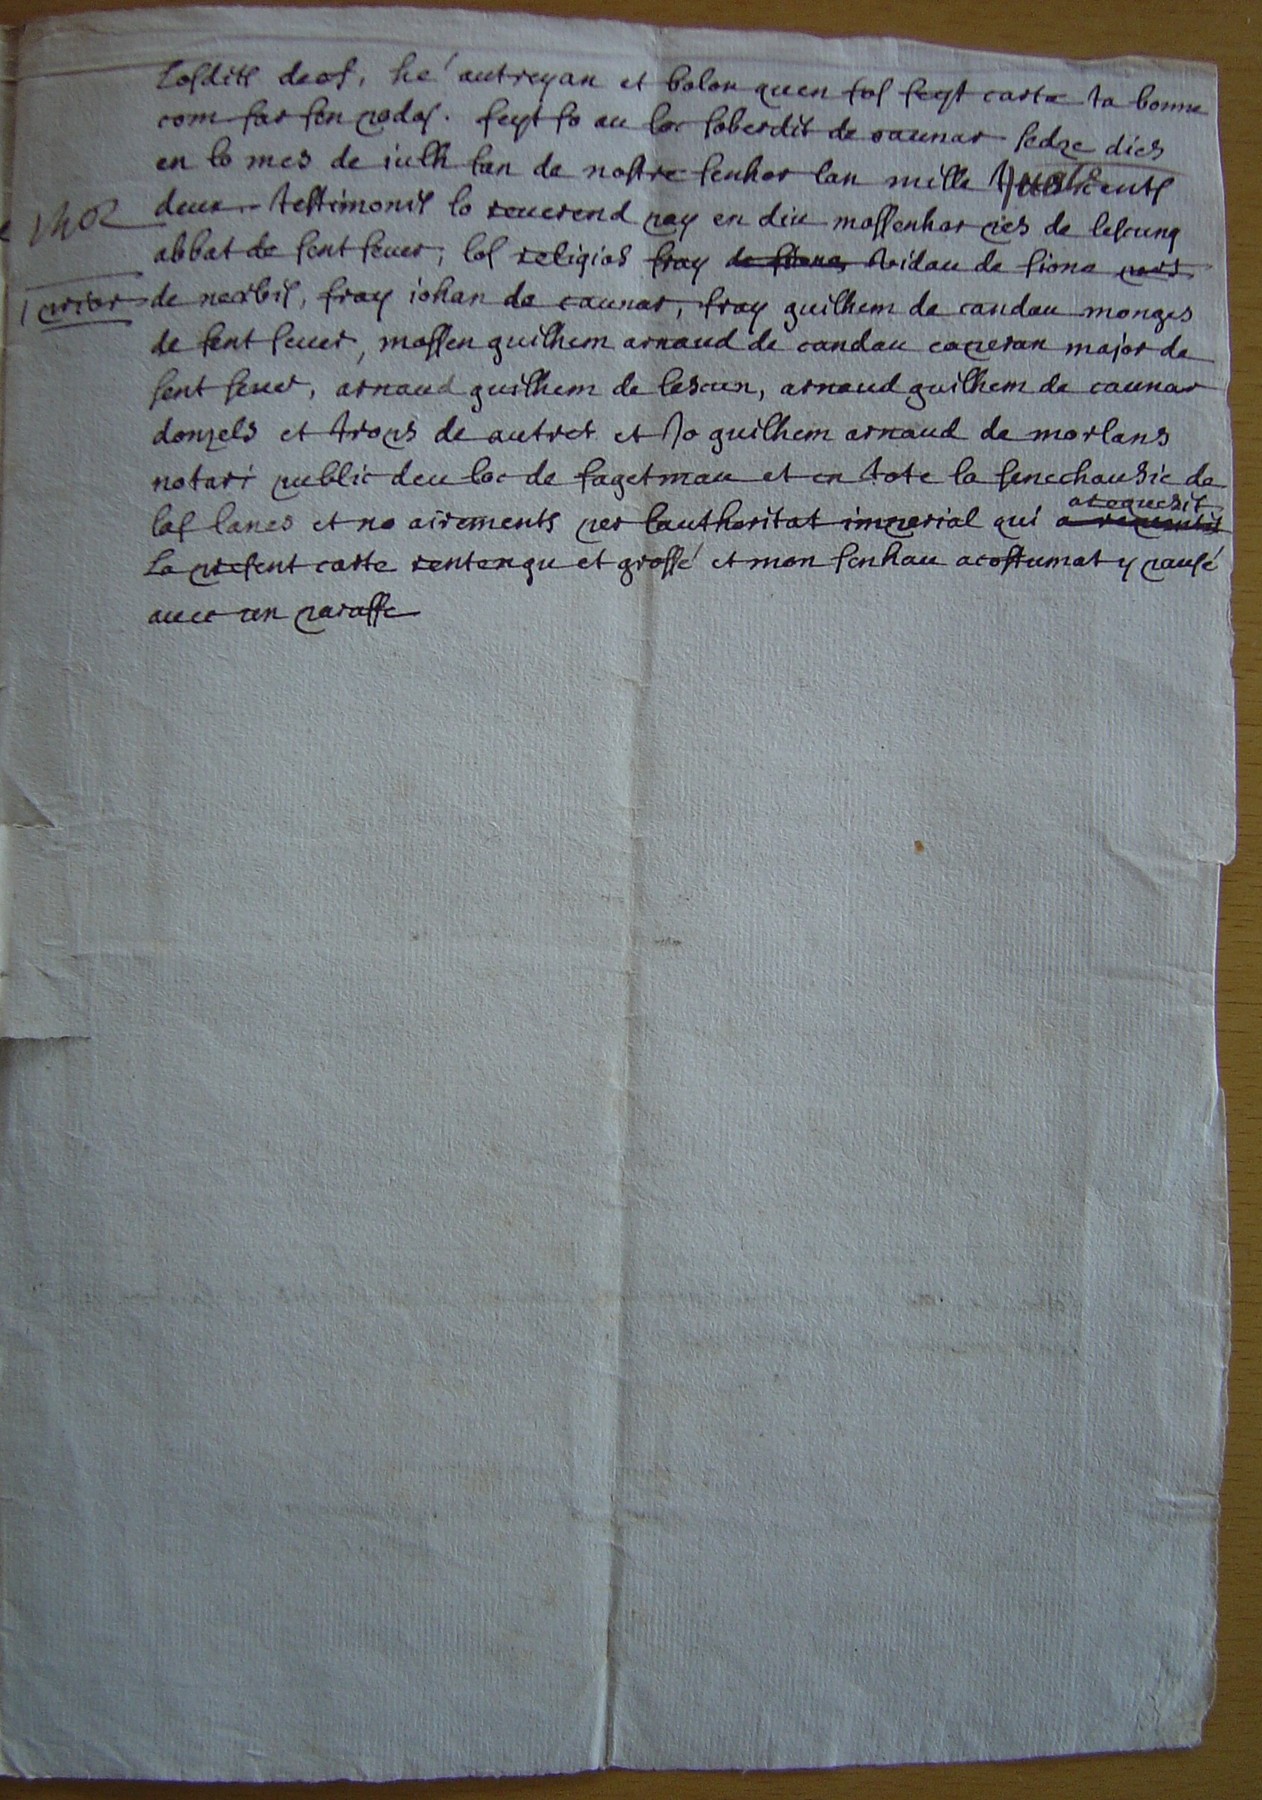 Losdits deos, he autreyan et bolon quen fos feyt carte ta bonne
com far sen podos. feyt fo au loc soberdit de caunar sedze dies
en lo mes de iulh lan de nostre senhor lan mille quate cents
1402 deux. testimonis lo reuerend pay en diu mossenhor pes de lescung
abbat de sent seuer, los religios fray de siona vidau de siona
prior de nerbis, fray iohan de caunar, fray guilhem de candau monges
de sent seuer, mossen guilhem arnaud de candau caperan major de
sent seuer, arnaud guilhem de lescun, arnaud guilhem de caunar
donzels et trops de autres et Jo guilhem arnaud de morlans
notari public deu loc de fagetmau et en tote la senechausie de
las lanes et no airements per lauthoritat imperial qui a requerit
La present carte rentengu et grossé et mon senhau acostumat y pausé
auec un paraffe